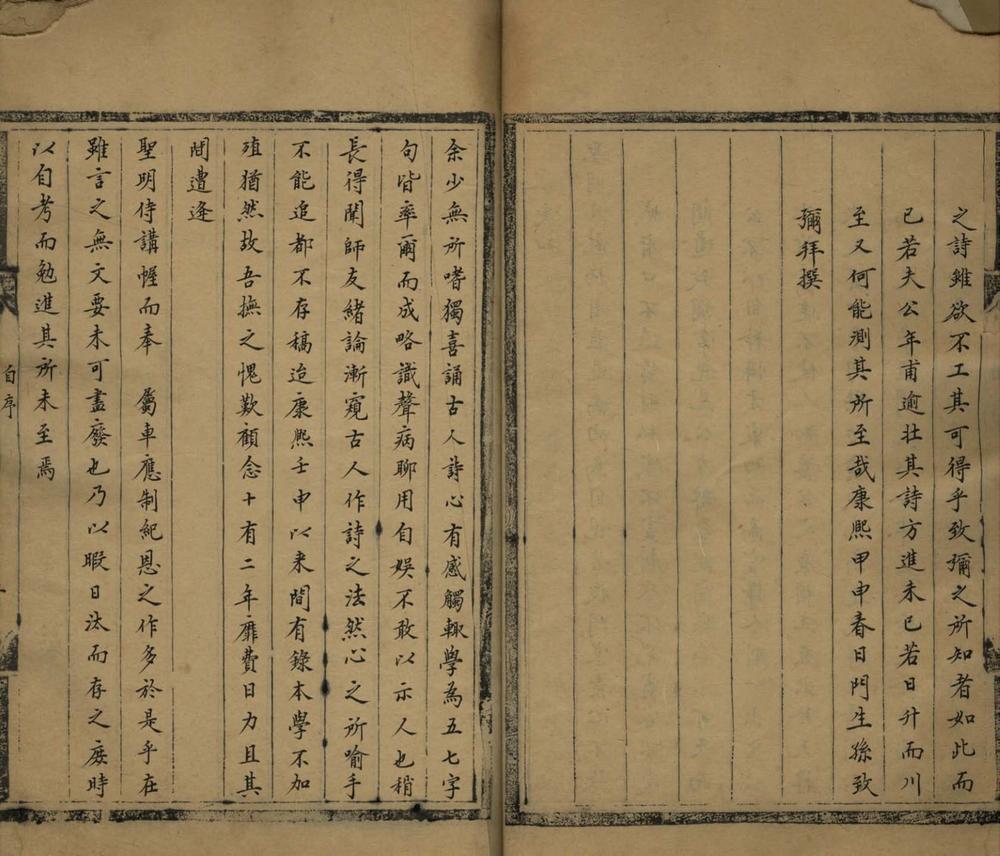 之詩雖欲不工其可得乎致彌之所知者如此而
已若夫公年甫逾壮其詩方進未已若日升而川
至又何能測其所至哉康熙甲申春日門生孫致
彌拜撰
余少無所嗜獨喜誦古人詩心有感觸輙學為五七字
句皆率爾而成略識聲病聊用自娛不敢以示人也稍
長得聞師友緒論漸窺古人作詩之法然心之所喻手
不能追都不存稿迨康熙壬申以来間有錄本學不加
殖猶然故吾撫之愧歎顧念十有二年靡費日力且其
間遭逄
聖明侍講幄而奉 屬車應制紀恩之作多於是乎在
雖言之無文要未可盡廢也乃以暇日汰而存之庻時
以自考而勉進其所未至焉
自序